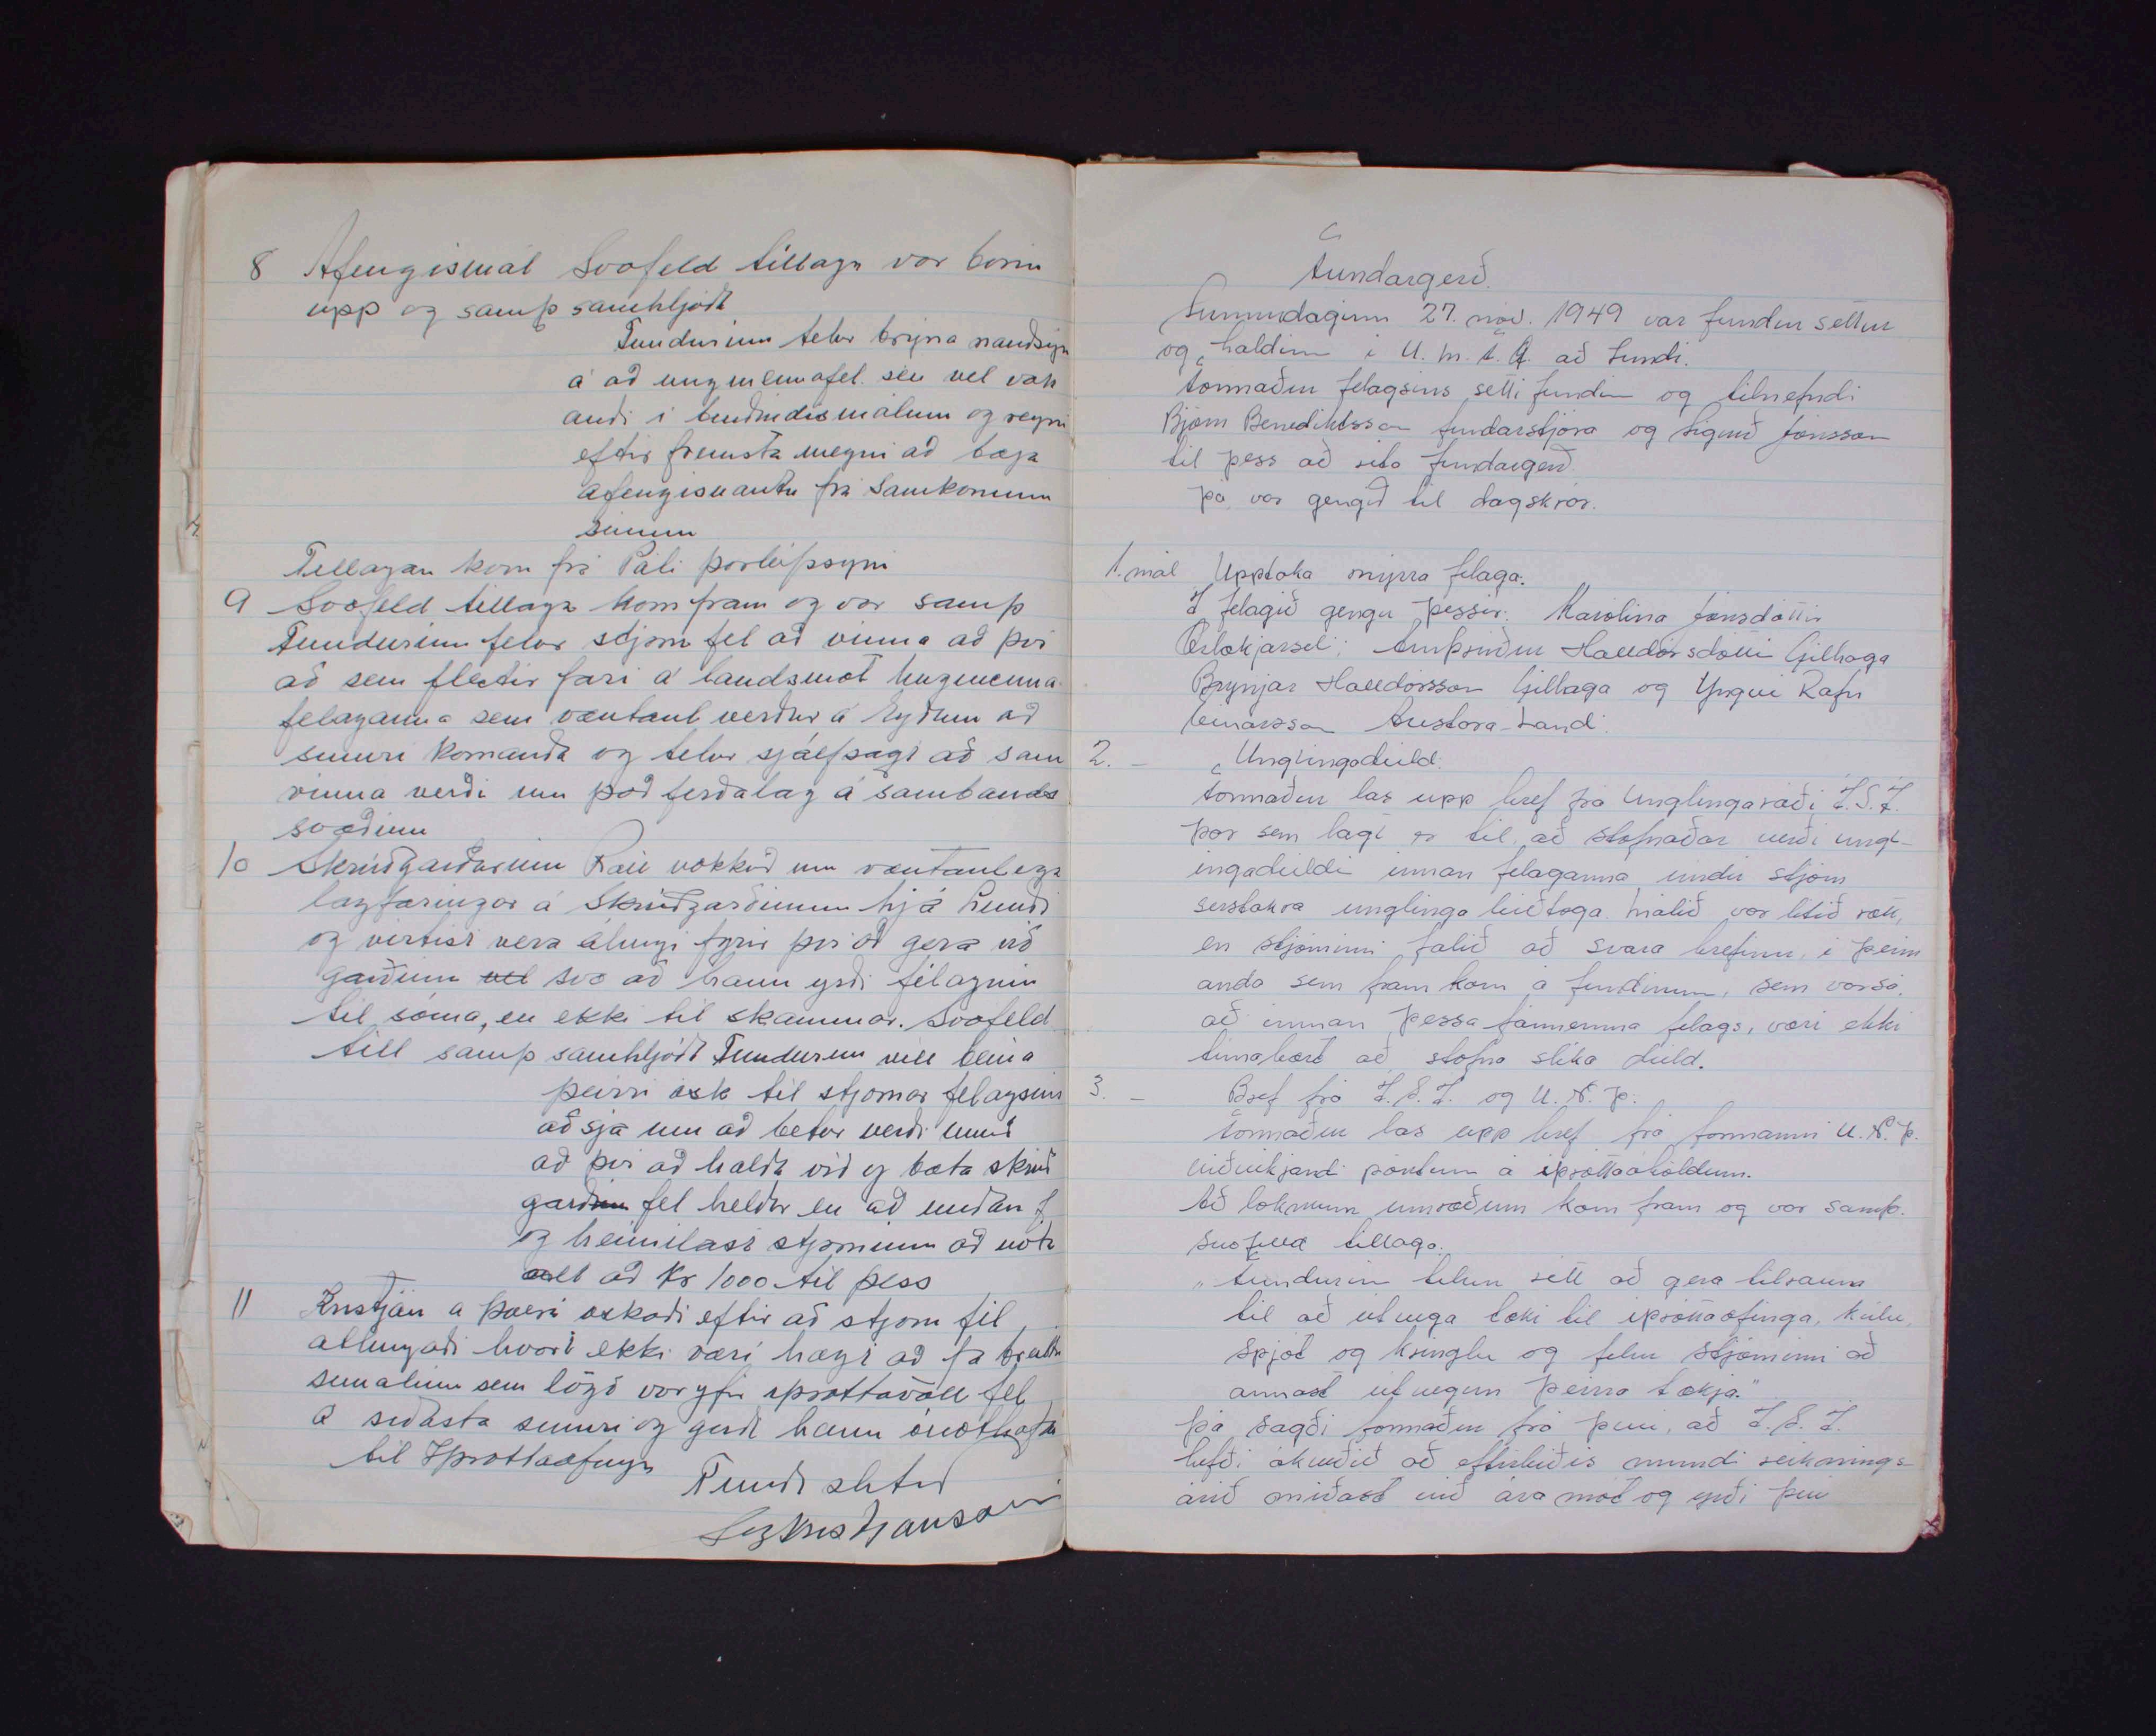 8 Áfengismál Svofeld tillaga var borin
upp og samþ samhljóða
Fundurinn telur brýna nauðsyn
á að ungmennafél. séu vel vak
andi í bindindismálum og reyni
eftir fremsta megni að bæja
áfengisnautn frá samkomum
sínum
Tillagan kom frá Páli Þorleifssyni
9 Svofeld tillaga kom fram og var samþ
Fundurinn felur stjorn fel að vinna að þvi
að sem flestir fari á landsmót Ungmenna
felaganna sem væntanl verður á Eyðum að
sumri komanda og telur sjálfsagt að sam
vinna verði um það ferðalag á sambands
svæðinu
10 Skrúðgarðurinn Rætt nokkuð um væntanlega
lagfæringar á Skrúðgarðinum hjá Lundi
og virtist vera áhugi fyrir þvi að gera við
garðinn vel svo að hann yrði félaginu
til sóma, en ekki til skammar. Svofeld
till samþ samhljóða Fundurinn vill beina
þeirri ósk til stjornar felagsins
að sjá um að betur verði unnið
að þvi að halda við og bæta skrúð
garðinn fel heldur en að undan f.
og heimilast stjorninni að nota
allt að Kr 1000 til þess
11 Kristján á Þverá óskaði eftir að stjorn fél
athugaði hvort ekki væri hægt að fá
simalinu sem lögð var yfir iprottavöll fel
á siðasta sumri og gerði hann ónothæfan
til Iþrottaæfinga
Fundi slitið
Sig Kristjansson
Fundargerð.
Sunnudaginn 27. nóv. 1949 var fundur settur
og haldinn i U.M.F.Ö. að Lundi.
Formaður felagsins setti fundin og tilnefndi
Björn Benediktsson fundarstjóra og Sigurð Jónsson
til þess að rita fundargerð.
Þá var gengið til dagskrár.
1. mál Upptaka nýrra félaga.
Í félagið gengu þessir: Karólína Jónsdóttir
Ærlækjarseli; Arnþrúður Halldórsdóttir Gilhaga
Brynjar Halldórsson Gilhaga og Yngvi Rafn
Einarsson Austara-Landi.
2. – Unglingadeild.
Formaður las upp bref frá Unglingaráði Í.S.Í.
þar sem lagt er til, að stofnaðar verði ungl-
ingadeildir innan félaganna undir stjórn
sérstakra unglinga leiðtoga. Málið var lítið rætt,
en stjórninni falið að svara bréfinu, í þeim
anda sem fram kom á fundinum, sem var sá,
að innan þessa fámenna félags, væri ekki
tímabært að stofna slíka deild.
3. – Bréf frá Í.S.Í. og U.N.Þ.
Formaður las upp bréf frá formanni U.N.Þ.
viðvíkjandi pöntun á íþróttaáhöldum.
Að loknum umræðum kom fram og var samþ.
svofelld tillaga.
"Fundurinn telur rétt að gera tilraun
til að útvega tæki til íþróttaæfinga, kúlu,
spjót og kringlu og felur stjórninni að
annast útvegun þeirra tækja."
Þá sagði formaður frá þvi, að Í.S.Í.
hefði ákveðið að eftirleiðis mundi reiknings-
árið miðast við áramót og yrði þvi